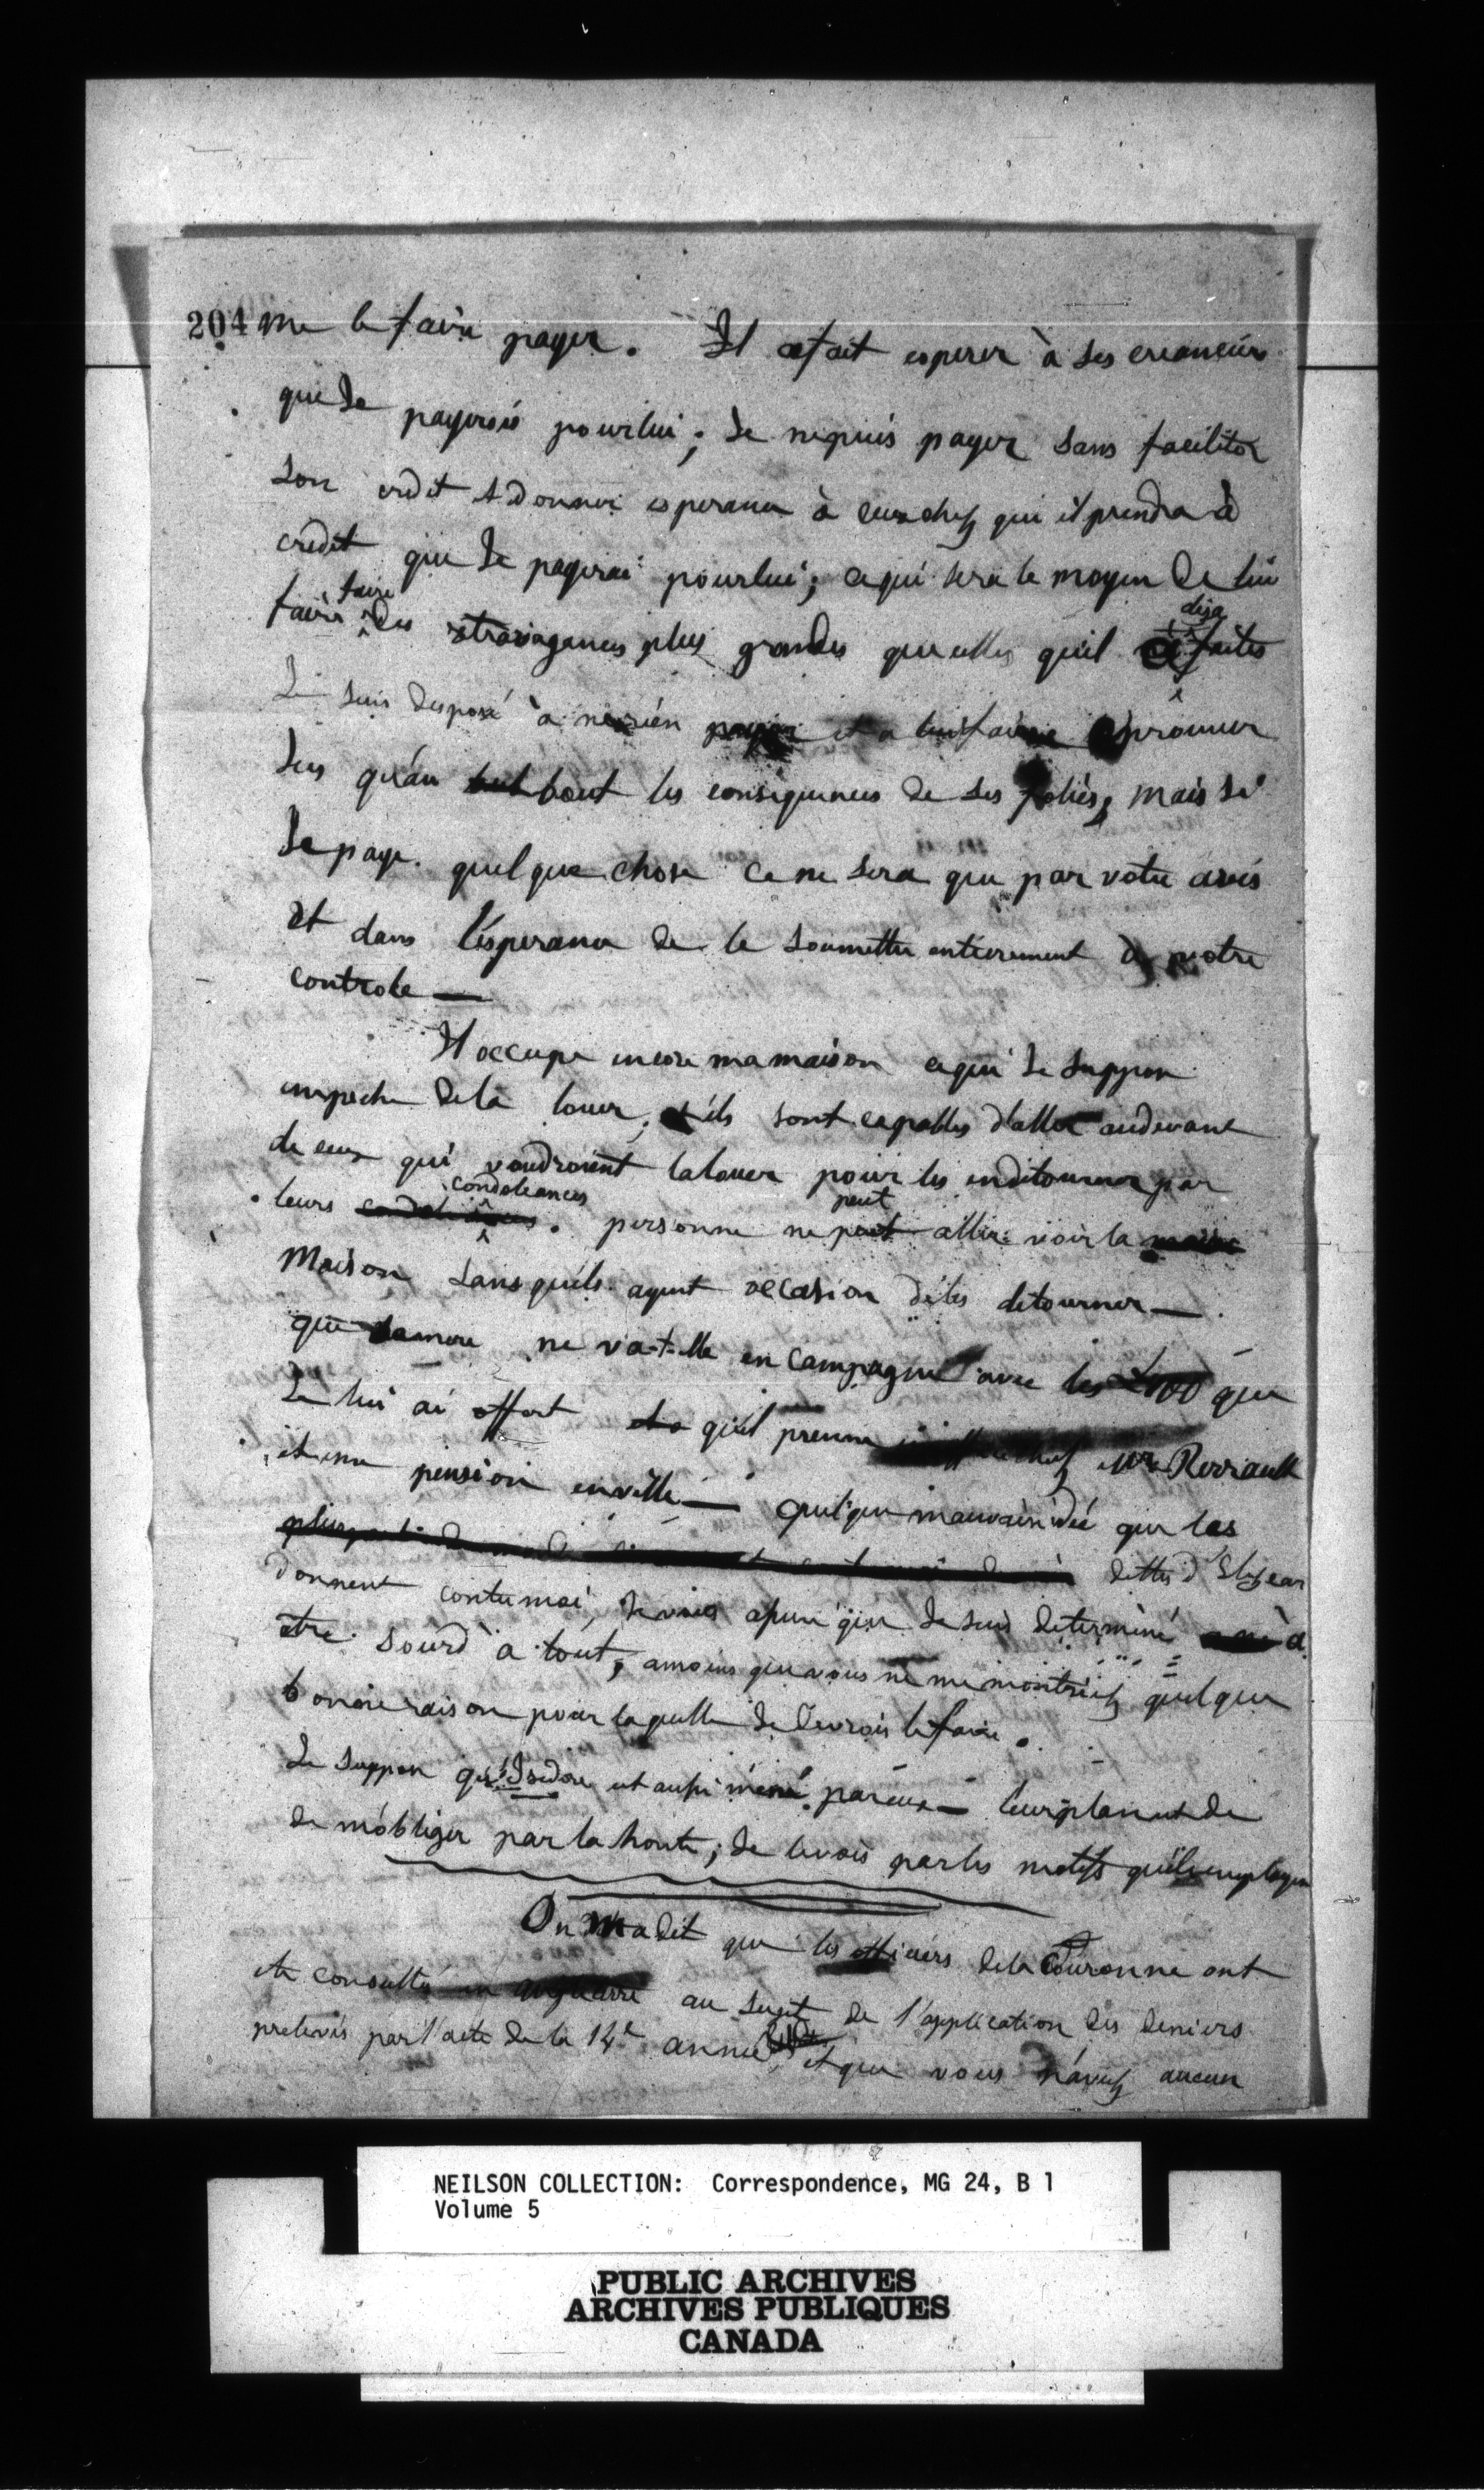 204 me le faire payer. Il a fait esperer à ses creanciers
que Je payerois pour lui; Je ne puis payer sans faciliter
son credit et donner esperance à ceux chez qui il prendra à
credit que Je payerai pour lui; ce qui sera le moyen de lui
faire faire des extravagances plus grandes que celles qu'il a deja faites
Je suis disposé à ne rien payer et a lui faire eprouver
Jus qu'au bout les consequences de ses folies, mais si
Je paye quelque chose ce ne sera que par votre avis
et dans l'esperance de le soumettre entierement à votre
controle —
Il occupe encore ma maison ce qui Je suppose
empeche de la louer, ils sont capables d'aller audevant
de ceux qui voudroient la louer pour les en detourner par
leurs condoleances. personne ne peut aller voir la
Maison sans qu'ils ayent occasion de les detourner —
que sa mere ne va-t-elle en campagne avec les £100 que
Je lui ai offert et qu'il prenne chez Mr Perrault
et une pension en ville — quelque mauvaise idée que les
dettes d'Elzear
donnent contre moi, Je vous assure que Je suis determiné à
etre sourd à tout, a moins que vous ne me montriez quelque
bonne raison pour laquelle Je devrois le faire.
Je suppose qu'Isidore est aussi mené par eux — leur plan est de
de m'obliger par la honte; Je le vois par les motifs qu'ils employen
On m'a dit que les officiers de la Couronne ont
ete consultés au sujet de l'application des deniers
prelevés par l'acte de la 14e année et que vous n'avez aucun
NEILSON COLLECTION: Correspondence, MG 24, B 1
Volume 5
PUBLIC ARCHIVES
ARCHIVES PUBLIQUES
CANADA